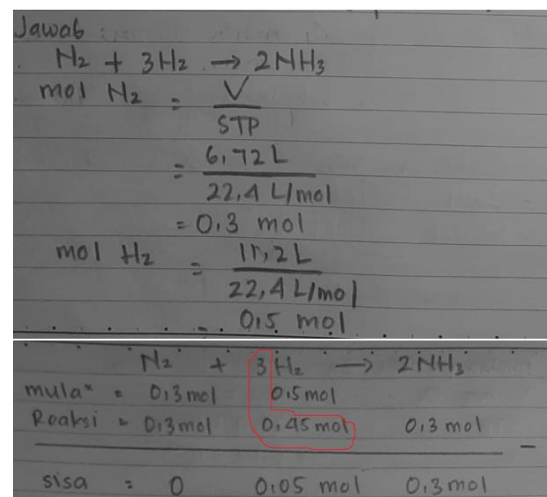 Jawab
N₂ + 3H₂ → 2NH₃
mol N₂ = V
STP
= 6,72 L
22,4 L/mol
= 0.3 mol
mol H₂ = 11,2 L
22,4 L/mol
0,5 mol
N₂ + 3H₂ → 2NH₃
mula" = 0,3mol 0,5mol
Reaksi = 0,3mol 0,45 mol 0,3 mol
sisa = 0 0,05 mol 0,3mol